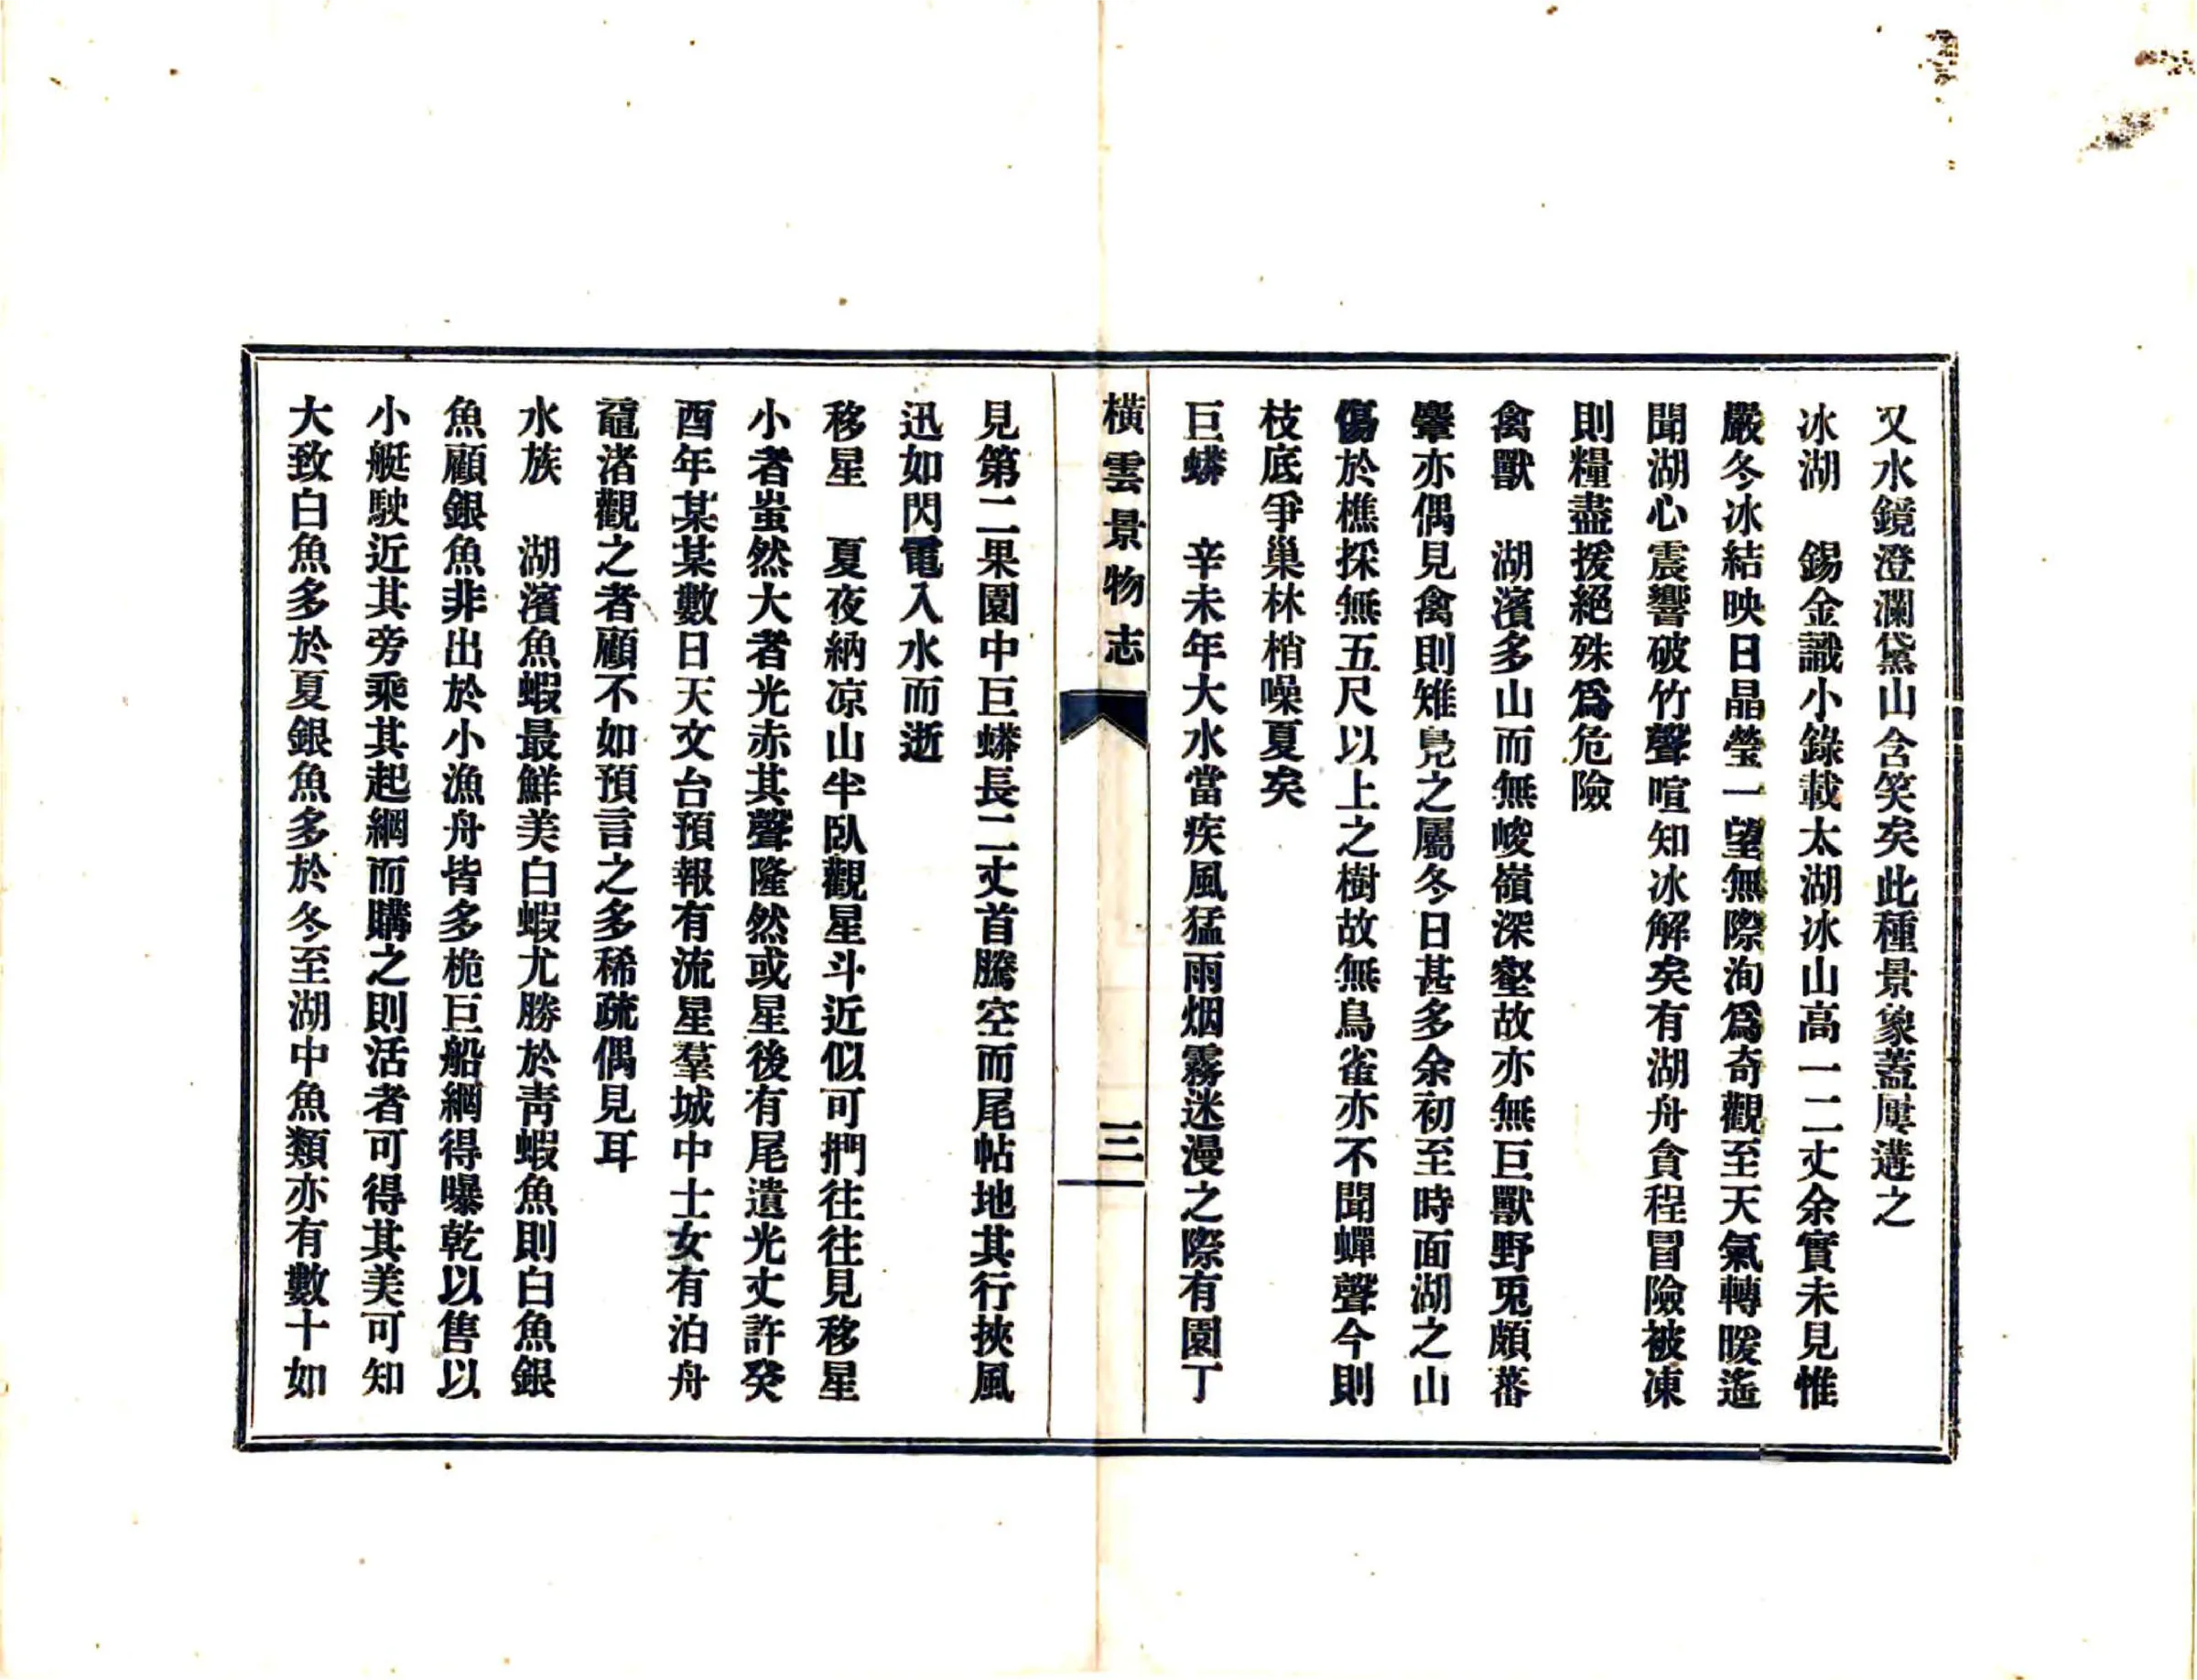 又水鏡澄瀾黛山含笑矣此種景象蓋屢遘之
冰湖　錫金識小錄載太湖冰山高一二丈余實未見惟
嚴冬冰結映日晶瑩一望無際洵爲奇觀至天氣轉暖遙
聞湖心震響破竹聲喧知冰解矣有湖舟貪程冒險被凍
則糧盡援絕殊爲危險
禽獸　湖濱多山而無峻嶺深壑故亦無巨獸野兎頗蕃
麞亦偶見禽則雉鳧之屬冬日甚多余初至時面湖之山
傷於樵採無五尺以上之樹故無鳥雀亦不聞蟬聲今則
枝底爭巢林梢噪夏矣
巨蟒　辛未年大水當疾風猛雨烟霧迷漫之際有園丁
橫雲景物志
三
見第二果園中巨蟒長二丈首騰空而尾帖地其行挾風
迅如閃電入水而逝
移星　夏夜納凉山半臥觀星斗近似可捫往往見移星
小者蚩然大者光赤其聲隆然或星後有尾遺光丈許癸
酉年某某數日天文台預報有流星羣城中士女有泊舟
黿渚觀之者顧不如預言之多稀疏偶見耳
水族　湖濱魚蝦最鮮美白蝦尤勝於靑蝦魚則白魚銀
魚顧銀魚非出於小漁舟皆多桅巨船網得曝乾以售以
小艇駛近其旁乘其起網而購之則活者可得其美可知
大致白魚多於夏銀魚多於冬至湖中魚類亦有數十如